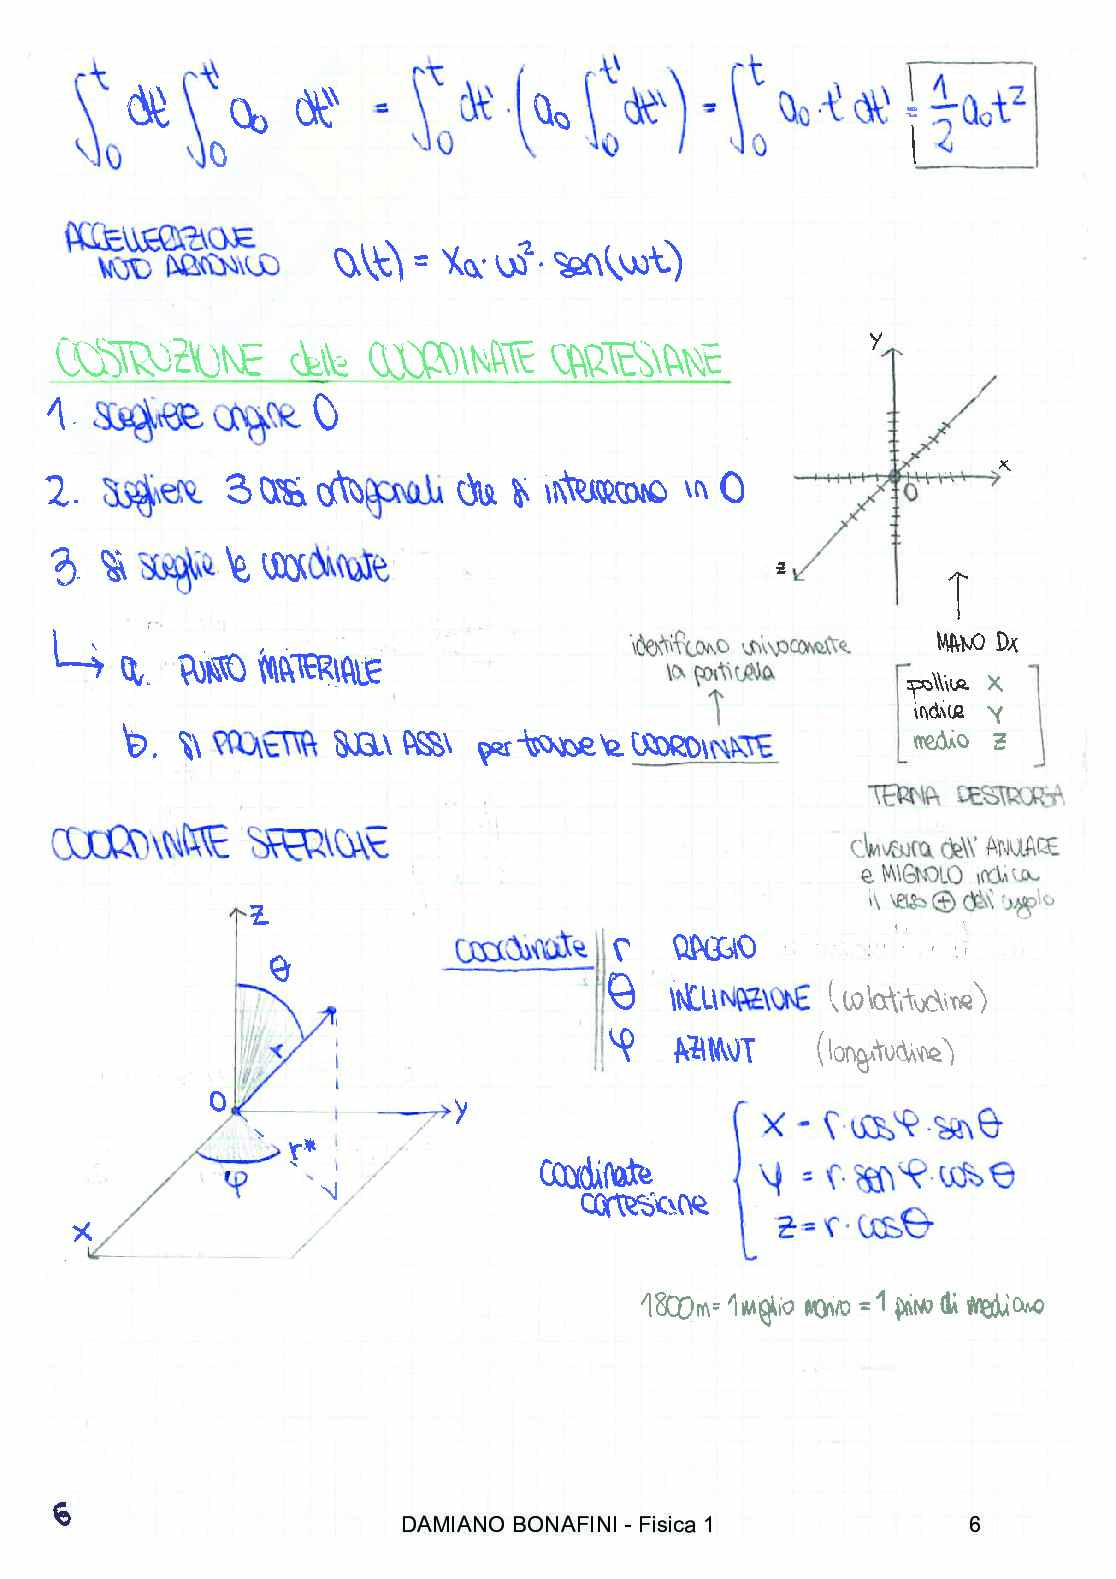 ∫₀ᵗ dt' ∫₀ᵗ' a₀ dt'' = ∫₀ᵗ dt' · (a₀ ∫₀ᵗ' dt'') = ∫₀ᵗ a₀ · t' dt' = 1/2 a₀t²
ACCELLERAZIONE
MOTO ARMONICO
a(t) = Xa · ω² · sen(ωt)
COSTRUZIONE delle COORDINATE CARTESIANE
1. scegliere origine O
2. scegliere 3 assi ortogonali che si intersecano in O
3. si sceglie le coordinate
y
x
O
z
a. PUNTO MATERIALE
identificano univocamente
la particella
b. SI PROIETTA SUGLI ASSI per trovare le COORDINATE
MANO Dx
pollice X
indice Y
medio Z
TERNA DESTRORSA
chiusura dell'ANULARE
e MIGNOLO indica
il verso ⊕ dell'angolo
COORDINATE SFERICHE
Z
θ
r
O
y
r*
φ
X
coordinate
r RAGGIO
θ INCLINAZIONE (colatitudine)
φ AZIMUT (longitudine)
coordinate
cartesiane
X = r · cosφ · senθ
y = r · senφ · cosθ
z = r · cosθ
1800m = 1 miglio = 1 di meridiano
6
DAMIANO BONAFINI - Fisica 1
6